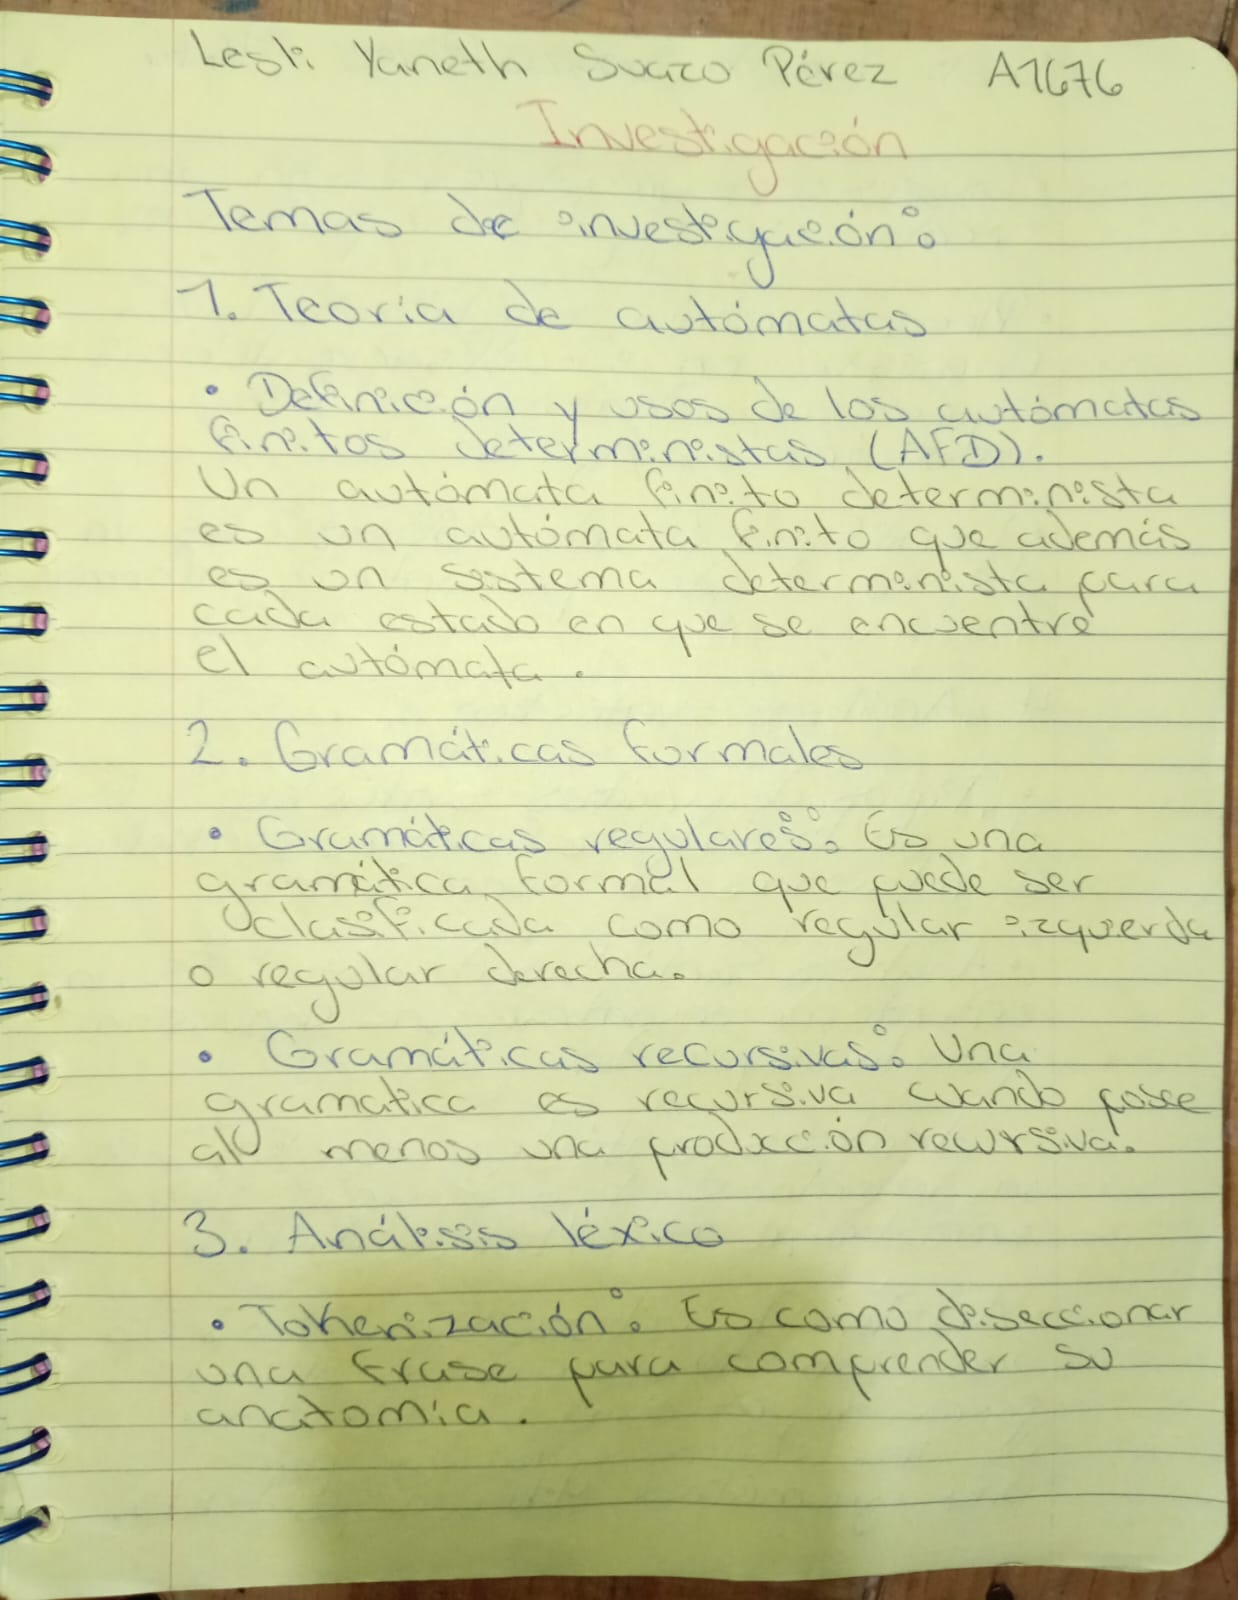 Lesli Yaneth Suazo Pérez A1676
Investigación
Temas de investigación:
1. Teoría de autómatas
• Definición y usos de los autómatas
finitos deterministas (AFD).
Un autómata finito determinista
es un autómata finito que además
es un sistema determinista para
cada estado en que se encuentre
el autómata.
2. Gramáticas formales
• Gramáticas regulares: Es una
gramática formal que puede ser
clasificada como regular izquierda
o regular derecha.
• Gramáticas recursivas: Una
gramatica es recursiva cuando posee
al menos una producción recursiva.
3. Análisis léxico
• Tokenización: Es como diseccionar
una frase para comprender su
anatomía.